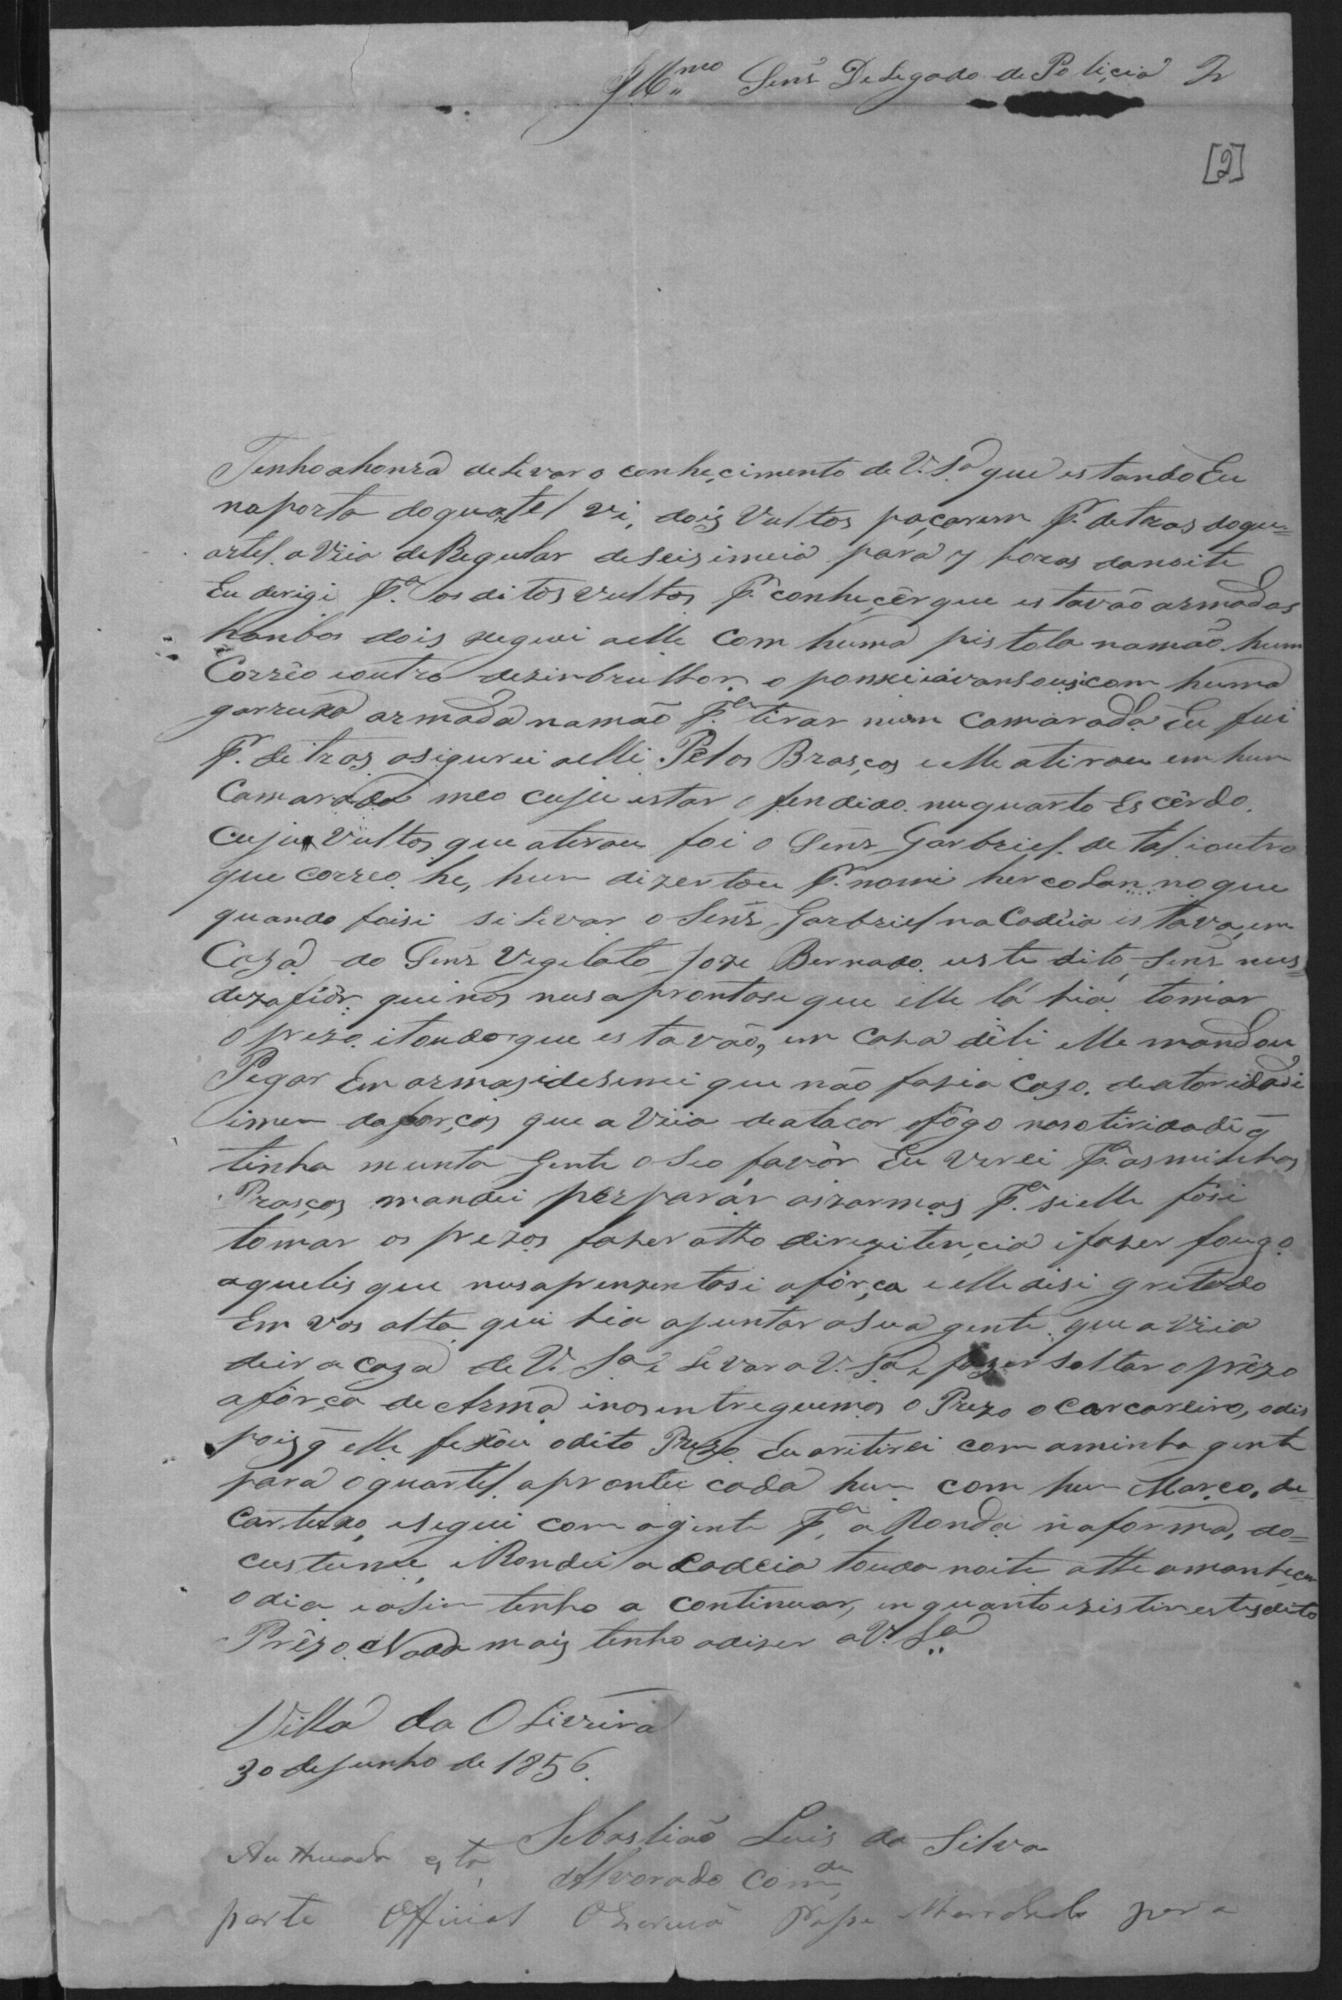 Illmo Senr Delegado de Policia 2
[2]
Tenho a honra de levar o conhecimento de V. Sa que estando Eu
na porta do quatel vi, dois Vultos paçarem pr. detras do qu=
artel. a Viia de Regular de seis i meia para 7 horas da noite
Eu derigi Pa. os ditos vultos pa. conheçêr que estavão armados
hanbos dois segui a elle com huma pistola na mão. hum
Corrêo i outro dezinbrulhor o ponxi i avansou si com huma
garruxa armada na mão Pa. tirar num Camarada Eu fui
Pr. detras asigurei a elli Pelos Brasços e elle atirou em hum
Camarada meo cuju estar ofendido. nu quarto Escêrdo.
Cuju Vultos que aterou foi o Senr Garbriel de tal i outro
que correo he, hum dizertou Pr. nomi hercolan no que
quando foi si si levar o Senr Garbriel na Cadeia estava, em
Caza do Senr Vegelato Joze Bernado. este dito Senr nus=
dezafiôr qui nos nus aprontasi que elle lá hia tomar
o prezo. i toudos que estavão, em caza dêli elle mandou
Pegar Em armas i desemi que não fazia Cazo. da atoridadi
i men da forças que a Viia de atacar fôgo nas otiridadi q̃
tinha munta gente o Seo favôr Eu Virei Pa. as minhas
Prasços mandei perparár as armas Pa. si elle fôsi
tomar os prezos fazer atto di rezitençia i fazer fougo
aquelis que nus aprenzentasi a fôrça e elle disi gritado
Em Vos alta qui hia ajuntar a Sua gente que a Viia
de ir a caza de V. Sa i levar a V. Sa i fazer soltar o prêzo
a fôrça de Arma i nos entreguemos o Prezo o Carcareiro, o dis
pois q̃ elle fexôu o dito Prezo Eu aritirei com a minha gente
para o quartel. aprontei cada hum com hum Março, de
Cartuxo e segui com a gente Pa. a Ronda na forma, do=
custume i Rondei a Cadeia touda noite atte amanheçer
o dia i asin tenho a continuar, en quanto ezistir estes dito
Prêzo. Nada mais tenho a dizer a V. Sa
Villa da Oliveira
30 de Junho de 1856.
Sebastião Luis da Silva
Alvorado Comde
Authuada esta
parte Official O Escrivão Passe Mandado para